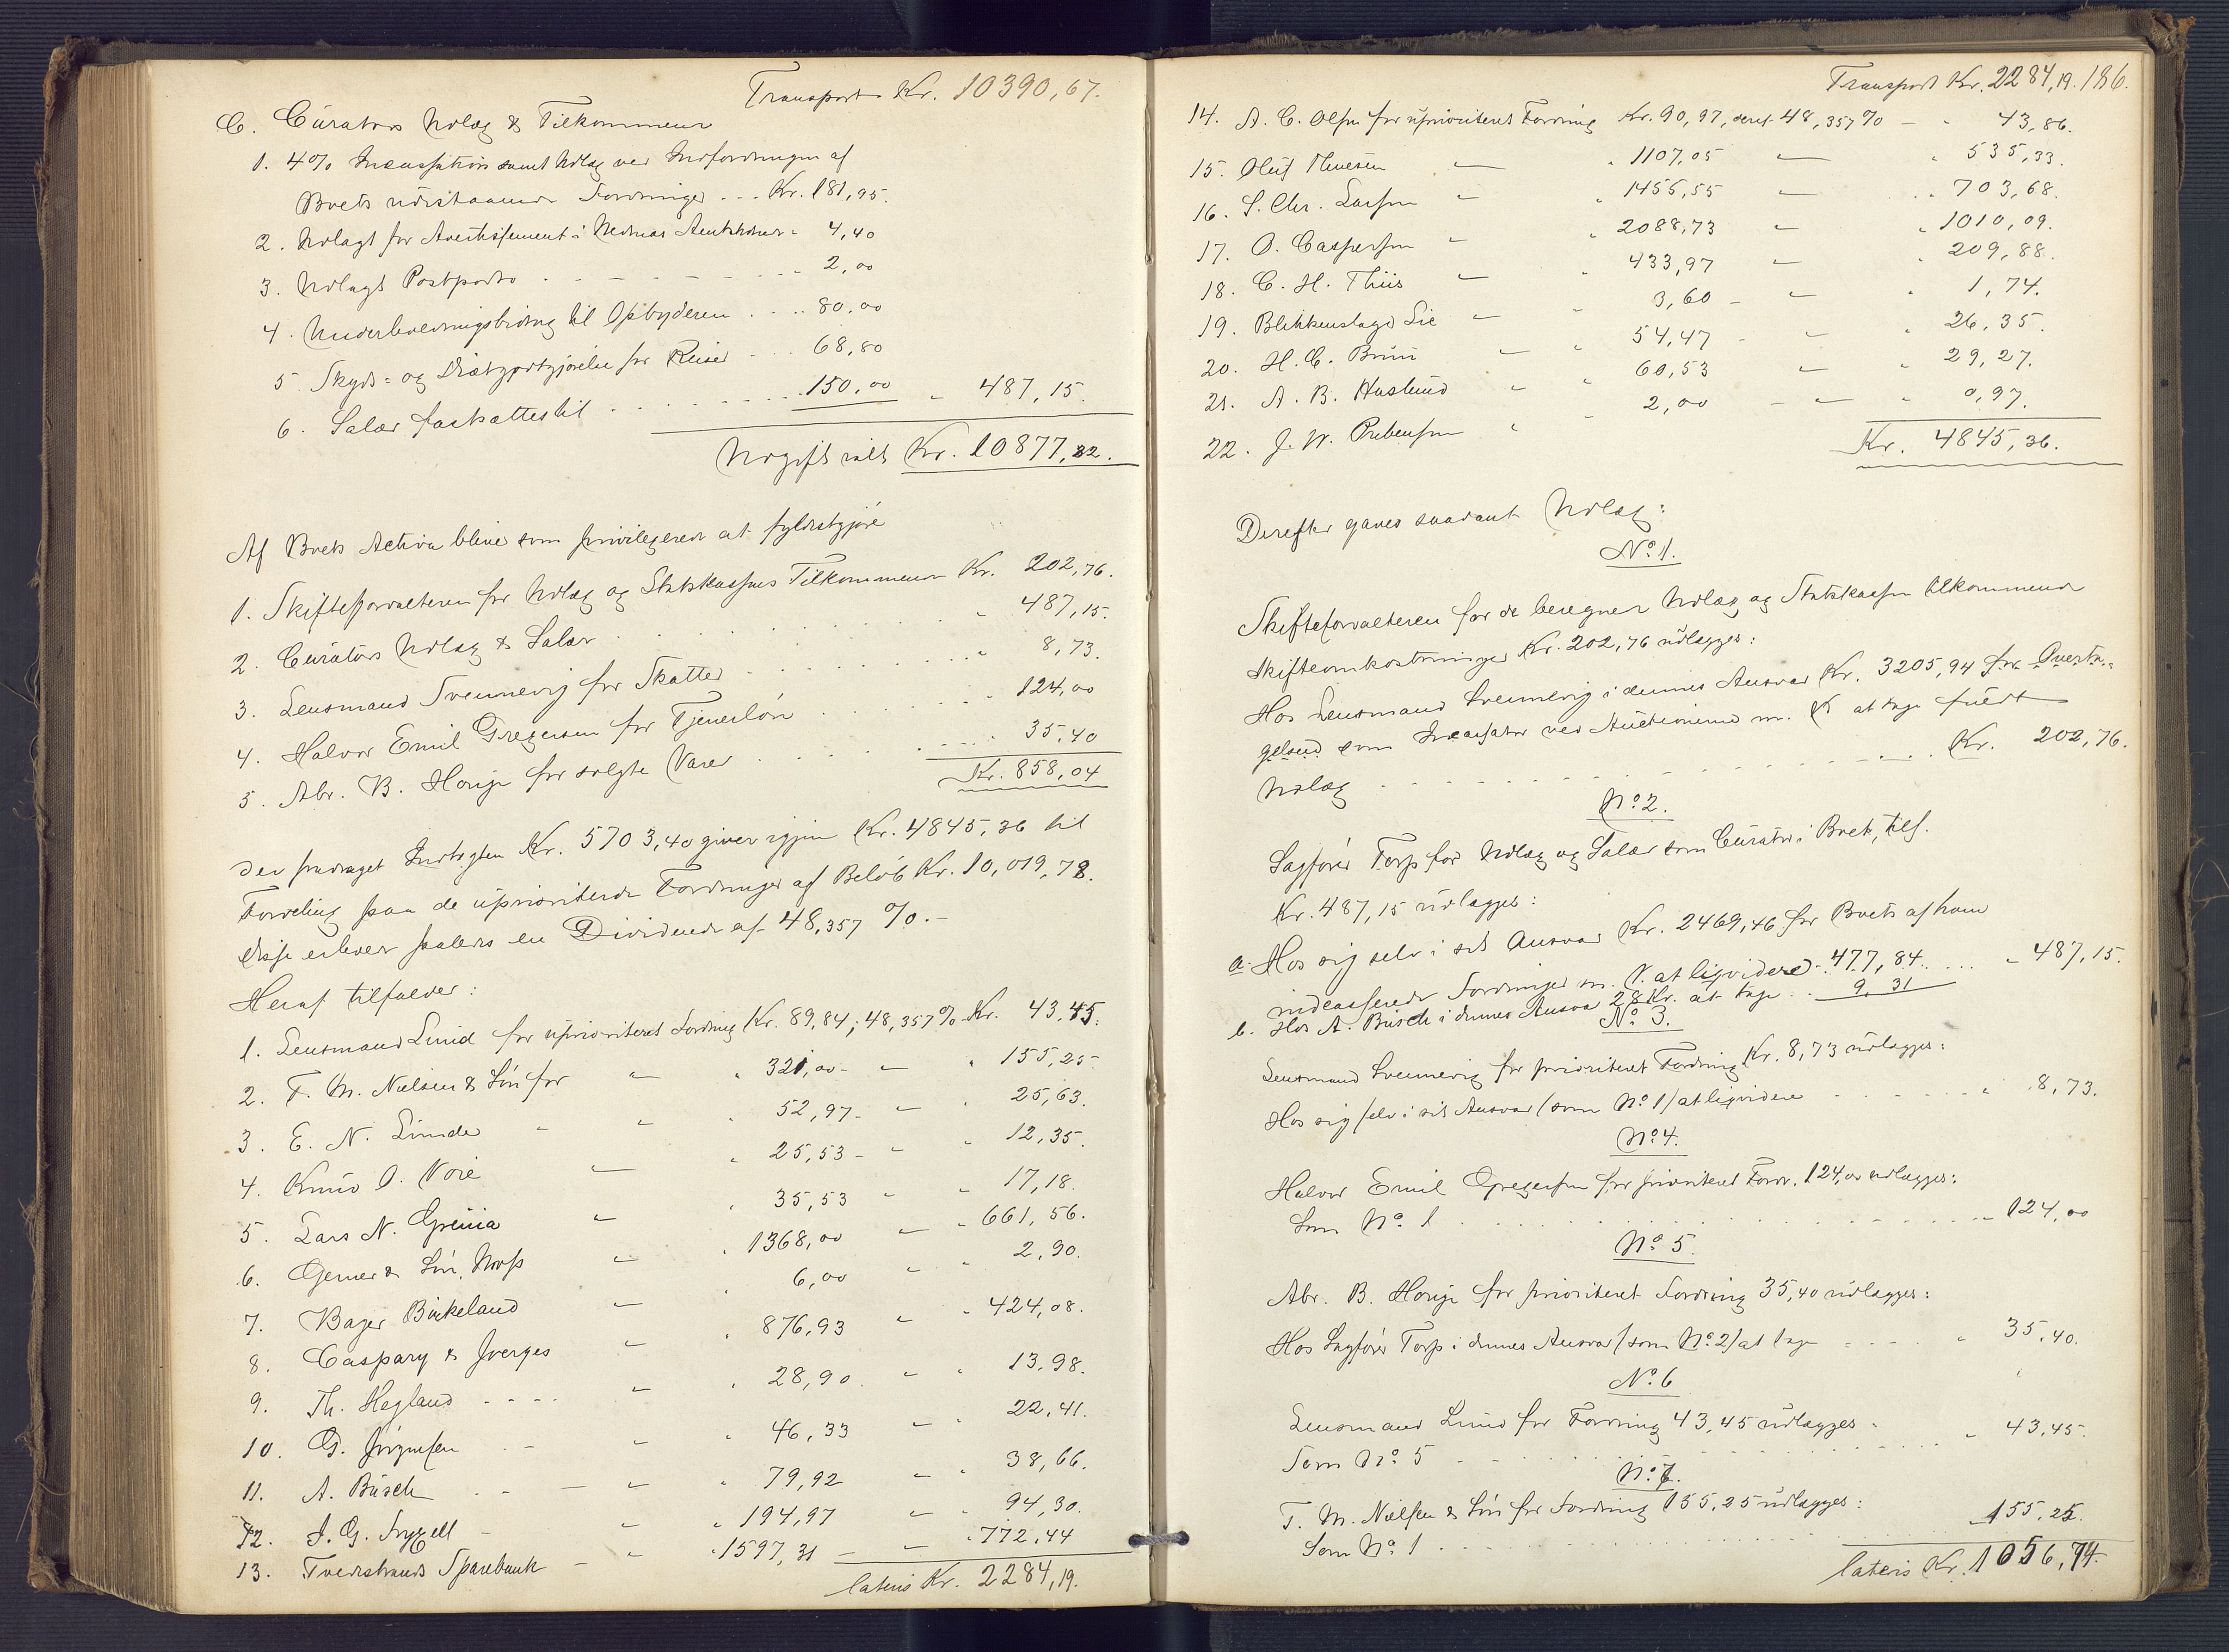 Transport Kr. 10390,67.
C. Curators Udlæg & Tilkommende
1. 4% Incassation samt Udlæg ved Indfordringen af
Boets udestaaende Fordringer ... Kr. 181,95.
2. Udlagt for Avertissement i Nedenæs Amtstidende " 4,40
3. Udlagt Postporto . . . . . " 2,00
4. Underholdningsbidrag til Opbyderen . . . " 80,00
5. Skyds- og Diætgodtgjørelse for Reiser . . . 68,80
6. Salær fastsættes til . . . . . 150,00 " 487,15.
Udgift ialt Kr. 10877,82.
Af Boets Activa blive som privilegerede at fyldestgjøre
1. Skifteforvalteren for Udlæg og Statskassens Tilkommende Kr. 202,76.
2. Curators Udlæg & Salær . . . . . " 487,15.
3. Lensmand Svennevig for Skatter . . . . . " 8,73.
4. Halvor Emil Gregersen for Tjenerløn . . . . . " 124,00
5. Abr. B. Horge for solgte Varer . . . . . 35,40
Kr. 858,04
der fradraget Indtægten Kr. 5703,40 giver igjen Kr. 4845,36 til
Fordeling paa de uprioriterede Fordringer af Beløb Kr. 10,019,78.
disse erholder saaledes en Dividende af 48,357 %.-
Heraf tilfalder:
1. Lensmand Lund for uprioriteret Fordring Kr. 89,84; 48,357% Kr. 43,45.
2. F. M. Nielsen & Søn for " " 321,00 - " " 155,25
3. E. N. Linde " " " 52,97 - " " 25,63.
4. Knud O. Voie " " 25,53 - " " 12,35.
5. Lars N. Grenia " " 35,53 " " 17,18.
6. Gerner & Søn, Moss " " 1368,00 " " 661,56.
7. Bager Birkeland " " 6,00 " " 2,90.
8. Caspary & Jverges " " 876,93 " " 424,08.
9. Th. Hegland - - - - " " 28,90. " " 13,98.
10. G. Jörgensen - - " " 46,33 " " 22,41.
11. A. Busch - - - " " 79,92 " " 38,66.
12. J. G. Frygell - " " 194,97 " " 94,30.
13. Tvedestrands Sparebank - " " 1597,31 - " " 772,44
lateris Kr. 2284,19.
Transport Kr. 2284,19. 186.
14. A. C. Olsen for uprioriteret Fordring Kr. 90,97, deraf 48,357% - " 43,86.
15. Oluf Thuesen " " 1107,05 " " 535,33.
16. S. Chr. Larsen " " 1455,55 " " 703,68.
17. O. Caspersen " " 2088,73 " " 1010,09.
18. C. H. Thiis " " 433,97 " " 209,88.
19. Blikkenslager Lie " " 3,60 - " " 1,74.
20. H. C. Bruu " " 54,47 - " " 26,35.
21. A. B. Haslund " " 60,53 " " 29,27.
22. J. W. Prebensen " " 2,00 - " " 0,97.
Kr. 4845,36.
Derefter gaves saadant Udlæg:
No 1.
Skifteforvalteren for de beregnede Udlæg og Statskassen tilkommende
Skifteomkostninger Kr. 202,76 udlægges:
Hos Lensmand Svennevig i dennes Ansvar Kr. 3205,94 for Overta-
gelsen som Incassator ved Auctionerne m. V. at tage fuldt
Udlæg . . . . . Kr. 202,76.
No 2.
Sagfører Torp for Udlæg og Salær som Curator i Boet, tils.
Kr. 487,15 udlægges:
a. Hos sig selv i sit Ansvar Kr. 2469,46 for Boets af ham
indcasserede Fordringer m. V. at liqvidere - 477,84 . . . " 487,15.
b. Hos A. Busch i dennes Ansvar 28 Kr. at tage . . 9,31
No 3.
Lensmand Svennevig for prioriteret Fordring Kr. 8,73 udlægges:
Hos sig selv i sit Ansvar (som No 1) at liqvidere . . . . . " 8,73.
No 4.
Halvor Emil Gregersen for prioriteret Fordr. 124,00 udlægges:
Som No 1 . . . . . " 124,00
No 5.
Abr. B. Horge for prioriteret Fordring 35,40 udlægges:
Hos Sagfører Torp i dennes Ansvar (som No 2) at tage . . . . " 35,40.
No 6
Lensmand Lund for Fordring 43,45 udlægges:
Som No 5 . . . . . " 43,45.
No 7.
F. M. Nielsen & Søn for Fordring 155,25 udlægges:
Som No 1 . . . . . 155,25.
lateris Kr. 1056,74.